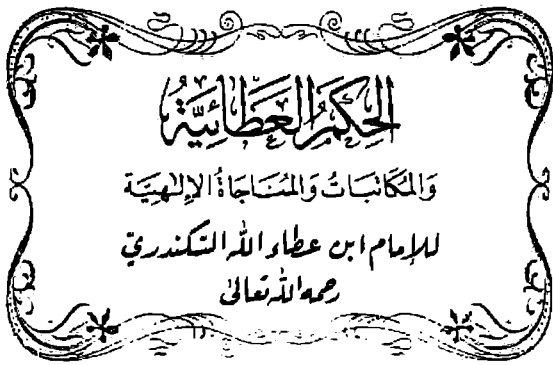 الحِكَمُ العَطَائِيَّةُ
وَالمُكَاتَبَاتُ وَالمُنَاجَاةُ الإِلٰهِيَّة
للإمام ابن عطاء الله السكندري
رحمه الله تعالى